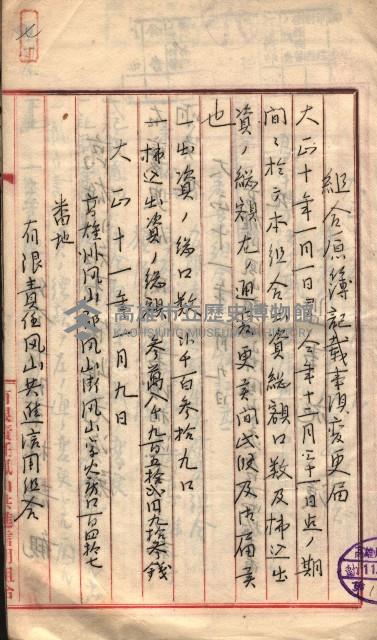 組合原簿記載事項変更届
大正十年一月一日ヨリ仝年十二月三十一日迄ノ期
間ニ於テ本組合出資総額口数及拂込出
資ノ総額左ノ通変更
也
一出資ノ総口数 千百参拾九口
一拂込出資ノ総額 参萬八千九百五拾弐円九拾参銭
大正十一年 月九日
高雄州鳳山郡鳳山街鳳山字火房口一百四拾七
番地
有限責任鳳山共進信用組合
高雄市立歷史博物館
KAOHSIUNG MUSEUM OF HISTORY
有限責任鳳山共進信用組合